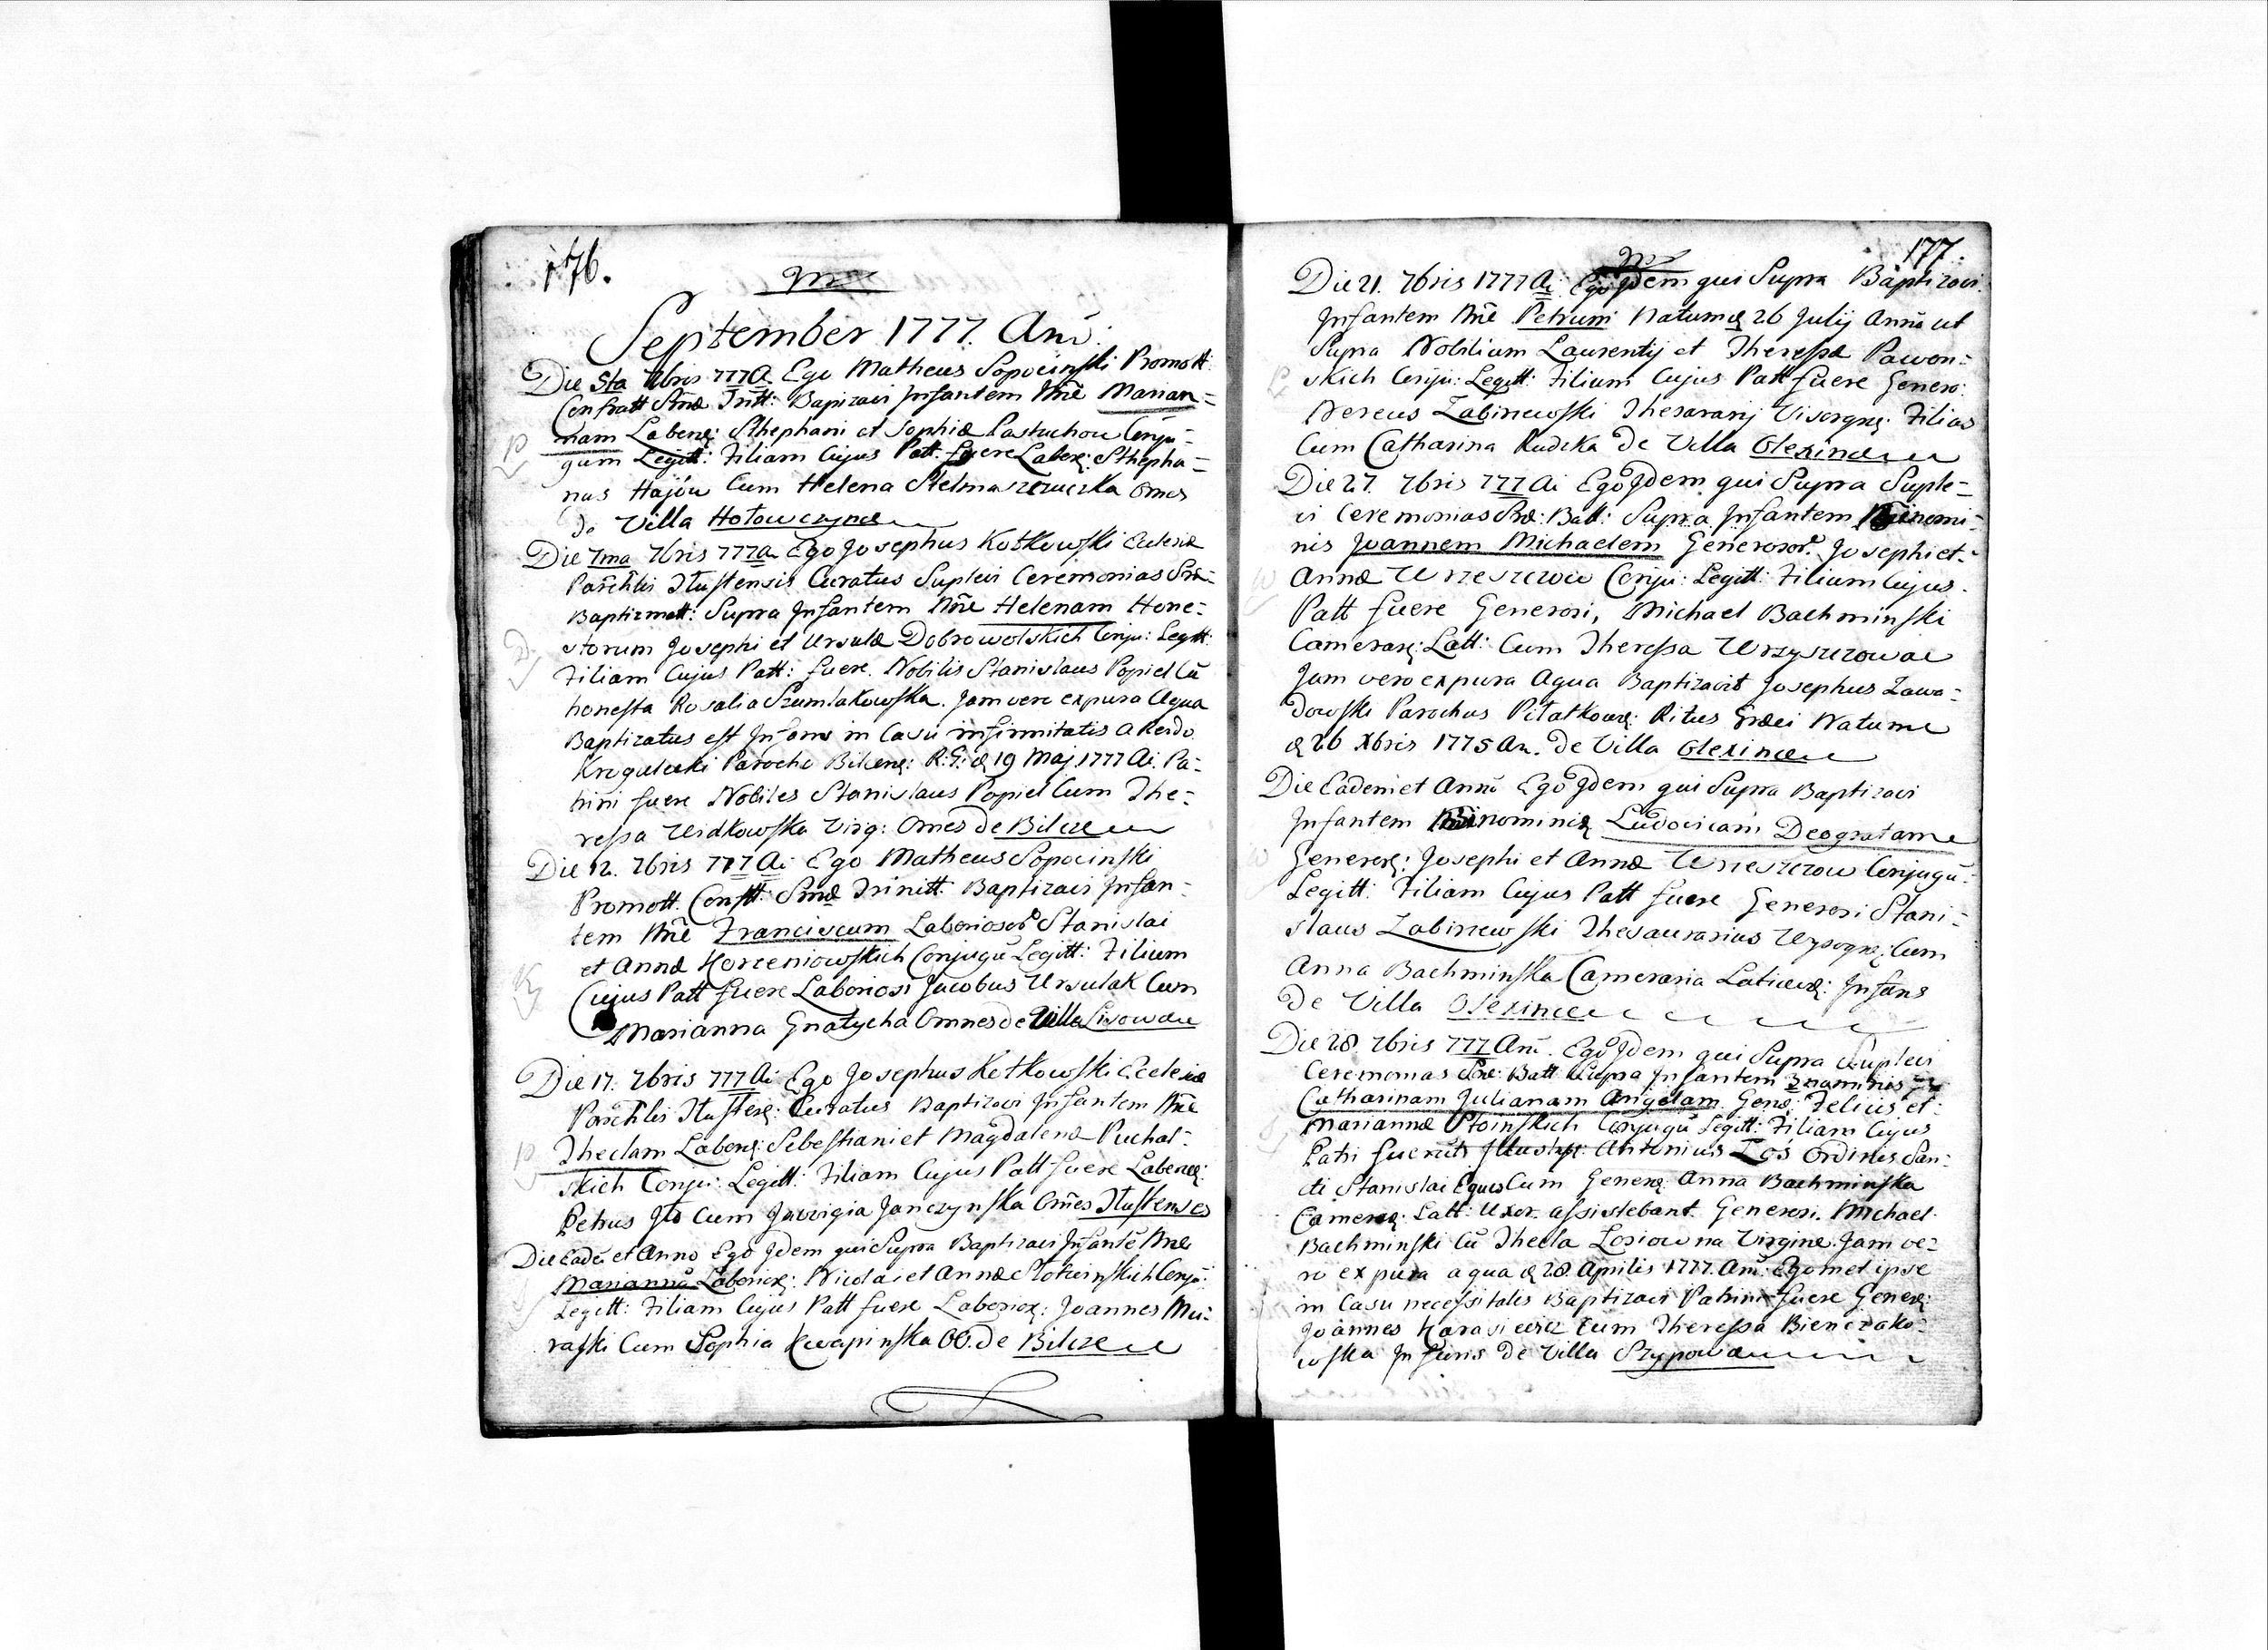 176.
September 1777. Anͮ.
Die 5ta 7bris 777 A. Ego Matheus Sopocinski Promott:
Confratt Smæ Tritt: Bapizavi Infantem Nñe Marian=
nam Laborę: Sthephani et Sophiæ Pastuchow Conju=
gum Legitt: Filiam Cujus Patt. fuere Laborę: Sthepha=
nus Hajów Cum Helena Stelmaszczuczka Omes
de Villa Hołowczynce
Die 7ma 7bris 777 a. Ego Josephus Kotkowski Eclesiæ
Parchlis Tłustensis Curatus Suplevi Ceremonias Sræ:
Baptizmatt: Supra Infantem Nñe Helenam Hone=
storum Josephi et Ursulæ Dobrowolskich Conju: Legitt:
Filiam Cujus Patt: fuere. Nobilis Stanislaus Popiel Cū
honesta Rosalia Szumlakowska. Jam vero ex pura Aqua
Baptizatus est Infans in Casu infirmitatis a Rendo.
Krogulecki Parocho Bilcenę: R: G: ę 19 Maj 1777 Ai. Pa=
trini fuere Nobiles Stanislaus Popiel Cum The=
ressa Widkowska Virg: Omes de Bilcze
Die 12. 7bris 777 Ai Ego Matheus Sopocinski
Promott. Confrtt: Smæ Trinitt. Baptizavi Infan=
tem Nñe Franciscum Laboriosor Stanislai
et Annæ Korzeniowskich Conjugū Legitt: Filium
Cujus Patt fuere Laboriosi Jacobus Ursulak Cum
Marianna Gnatycha Omnes de Villa Lisowce
Die 17. 7bris 777 Ai Ego Josephus Kotkowski Ecclesiæ
Parchlis Tłustenę: Curatus Baptizavi Infantem Nñe
Theclam Laborę: Sebestiani et Magdalenæ Puchal=
skich Conju: Legitt: Filiam Cujus Patt fuere Laborę:
Petrus Cum Jadvigia Janczynska Omes Tłustenses
Die Eadē et Anno Ego Idem qui Supra Baptizavi Infantē Nñe
Mariannā Laborię: Nicolai et Annæ Słotwinskich Conju:
Legitt: Filiam Cujus Patt fuere Laborioę: Joannes Mu=
rafki Cum Sophia Kwapinska OO. de Bilcze
177.
Die 21. 7bris 1777 Ai Ego Idem qui Supra Baptizavi
Infantem Nñe Petrum Natum ę 26 Julij Anno ut
Supra Nobilium Laurentij et Theressæ Pawon=
skich Conju: Legitt: Filium Cujus Patt fuere Genero:
Nereus Zabinewski Thesararij Visogrę: Filius
Cum Catharina Rudzka de Villa Olexince
Die 27. 7bris 777 Ai Ego Idem qui Supra Suple=
vi Ceremonias Sræ: Batt: Supra Infantem Binomi=
nis Joannem Michaelem Generosor. Josephi et=
Annæ Wrzeszczow Conju: Legitt: Filium Cujus.
Patt fuere Generosi, Michael Bachminski
Camerarę: Latt: Cum Theressa Wrzyszczowae
Jam vero ex pura Aqua Baptizavit Josephus Zawa=
dowski Parochus Piłatkowę: Ritus Græci Natum
ę 26 Xbris 1775 An. de Villa Olexince
Die Eadem et Anno Ego Idem qui Supra Baptizavi
Infantem Binominię Ludovicam Deogratam
Generę: Josephi et Annæ Wrzeszczow Conjugū=
Legitt: Filiam Cujus Patt fuere Generosi Stani=
slaus Zabinewski Thesaurarius Wysogrę: Cum
Anna Bachminska Cameraria Laticenę: Infans
de Villa Olexince
Die 28 7bris 777 Anͮ. Ego Idem qui Supra Suplevi
Ceremonias Sræ: Batt: Supra Infantem 3 nominis
Catharinam Julianam Angelam. Genę: Felicis et=
Mariannæ Słoinskich Conjugū Legitt: Filiam Cujus
Patri fuerūt Illustrs: Antonius Łoś Ordinis San=
cti Stanislai Eques Cum Generę: Anna Bachminska
Camerę: Latt: Uxor. assistebant Generosi. Michael
Bachminski Cū Thecla Łosiowna Virginę. Jam ve=
ro ex pura aqua ę 28 Aprilis 1777. Anͮ. Egomet ipse
in Casu necessitatis Baptizavi Patrini fuere Generę:
Joannes Harasiewicz Cum Theressa Bienczako=
wska Infans de Villa Szypowce